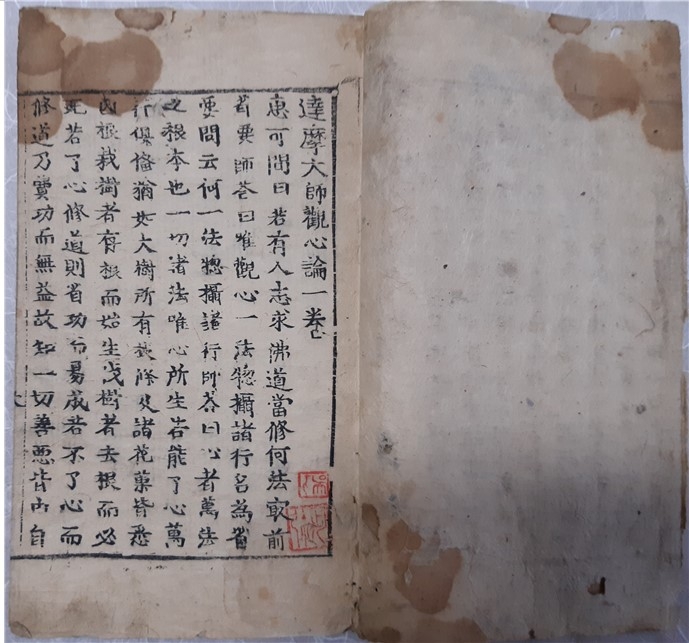 達摩大師觀心論一卷
惠可問曰若有人志求佛道當修何法冣前
省要師荅曰唯觀心一法惣攝諸行名為省
要問云何一法惣攝諸行師荅曰心者萬法
之根本也一切諸法唯心所生若能了心萬
行俱俻猶如大樹所有枝條及諸花菓皆悉
因根栽樹者存根而始生伐樹者去根而必
死若了心修道則省功而易成若不了心而
修道乃費功而無益故知一切善惡皆由自